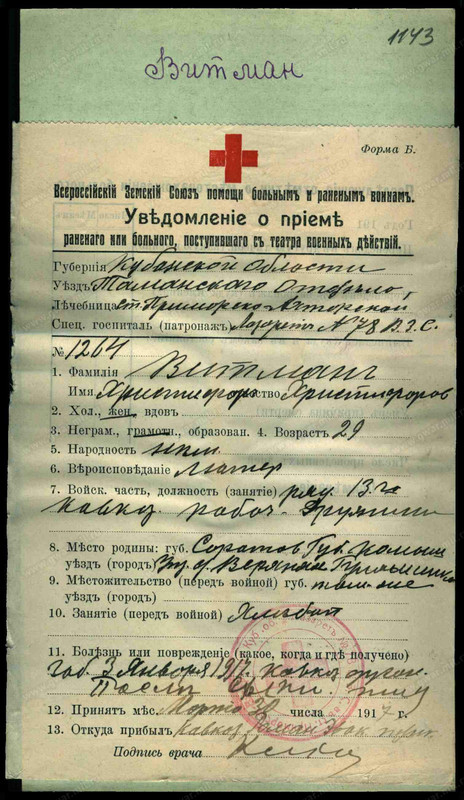 1143
Витман
Форма Б.
Всероссійскій Земскій Союзъ помощи больнымъ и раненымъ воинамъ.
Увѣдомленіе о пріемѣ
раненаго или больного, поступившаго съ театра военныхъ дѣйствій.
Губернія Кубанской Области
Уѣздъ Таманскаго Отдѣла,
Лѣчебница ст. Приморско-Ахтарской
Спец. госпиталь (патронажъ) Лазаретъ № 78 В.З.С.
№ 1264
1. Фамилія Витманъ
Имя Христофоръ Отчество Христофоров
2. Хол., жен., вдовъ
3. Неграм., грамотн., образован. 4. Возрастъ 29
5. Народность нѣм.
6. Вѣроисповѣданіе лютер
7. Войск. часть, должность (занятіе) ряд. 13-го
Кавказ. рабоч. Дружины
8. Мѣсто родины: губ. Саратов Губ. Камыш
уѣздъ (городъ)
9. Мѣстожительство (передъ войной) губ. там-же
уѣздъ (городъ)
10. Занятіе (передъ войной) Хлѣбоп
11. Болѣзнь или поврежденіе (какое, когда и гдѣ получено)
заб. 3 Января 1917. Кавказ
Послѣ
12. Принятъ мѣс. Марта числа 1917 г.
13. Откуда прибылъ Кавказ
Подпись врача